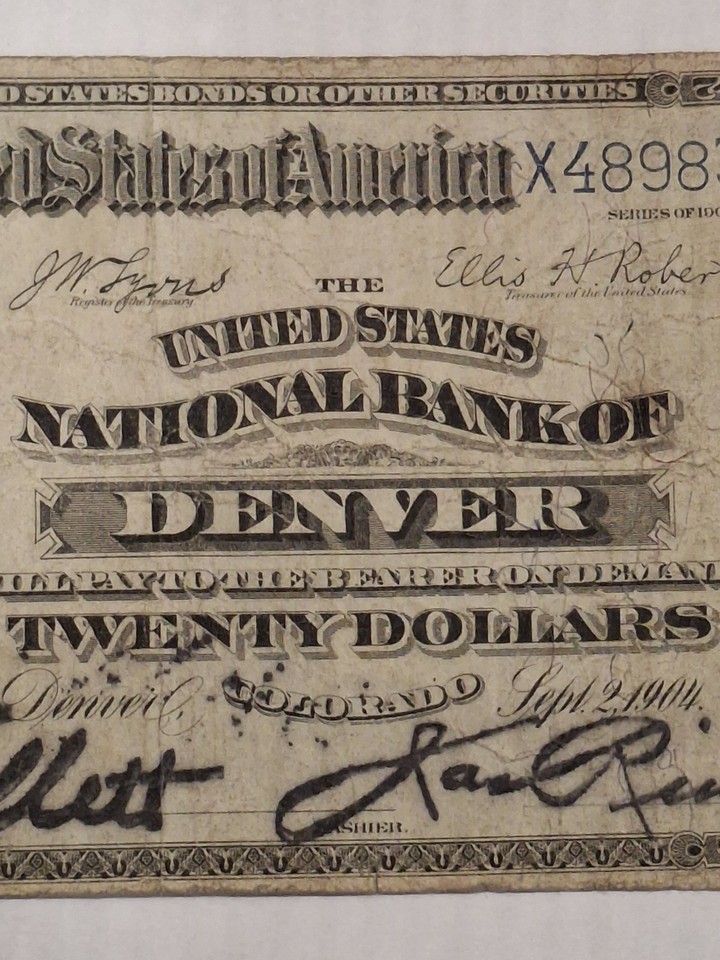 D STATES BONDS OR OTHER SECURITIES
ed States of America X48983
SERIES OF 190
J W Lyons
Register of the Treasury
THE
Ellis H Rober
Treasurer of the United States
UNITED STATES
NATIONAL BANK OF
DENVER
ILL PAY TO THE BEARER ON DEMAN
TWENTY DOLLARS
Denver C. COLORADO Sept. 2, 1904.
llett
CASHIER.